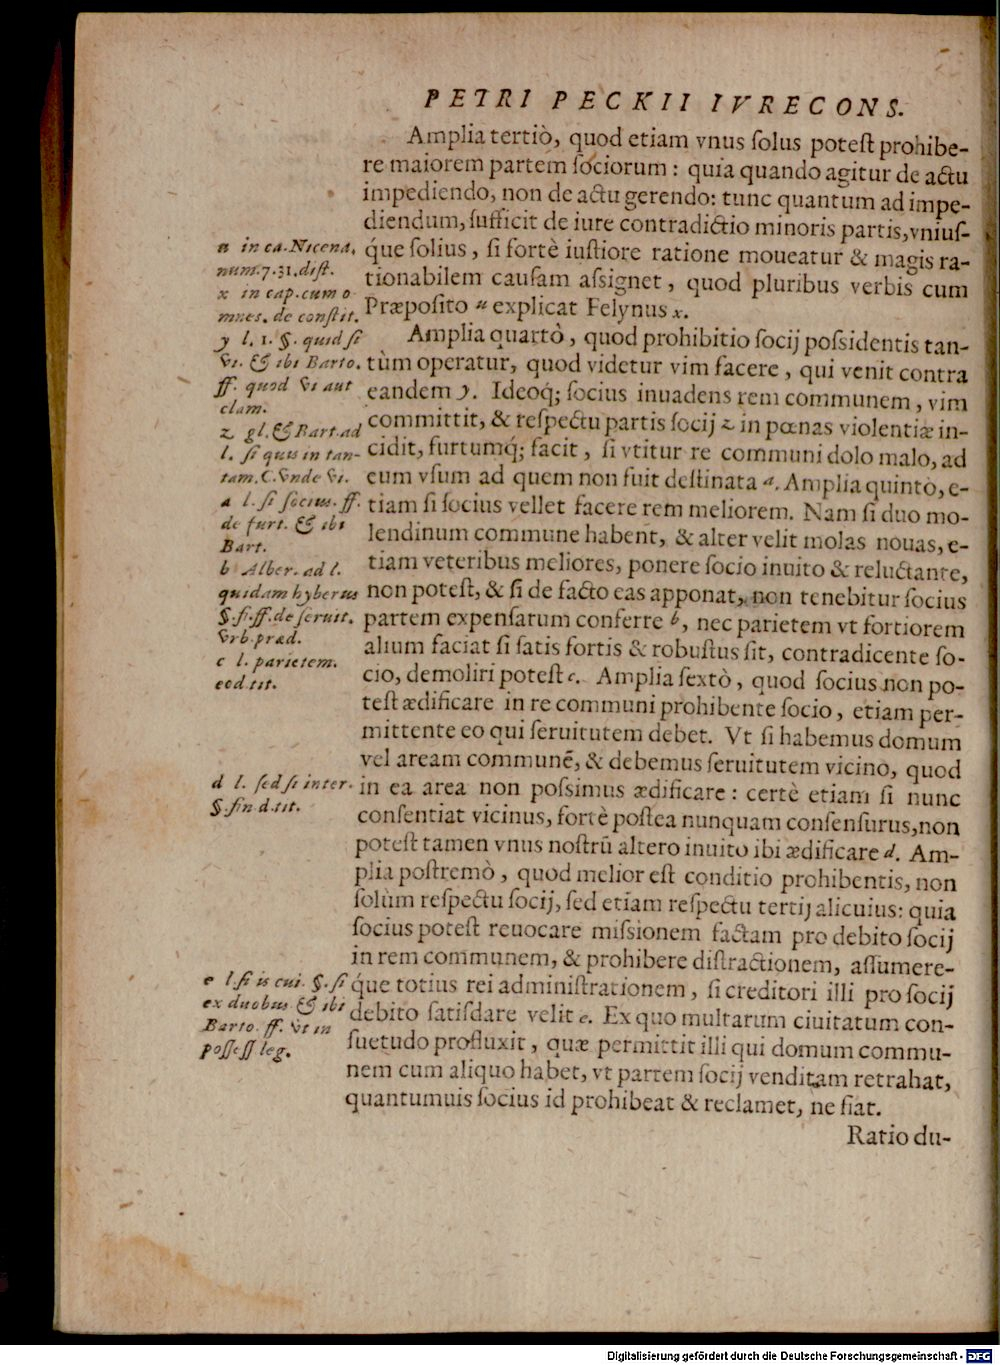 PETRI PECKII IVRECONS.
Amplia tertiò, quod etiam vnus ſolus poteſt prohibe-
re maiorem partem ſociorum : quia quando agitur de actu
impediendo, non de actu gerendo: tunc quantum ad impe-
diendum, ſufficit de iure contradictio minoris partis, vniuſ-
q́ue ſolius, ſi fortè iuſtiore ratione moueatur & magis ra-
tionabilem cauſam aſsignet, quod pluribus verbis cum
Præpoſito u explicat Felynus x.
Amplia quartò, quod prohibitio ſocij poſsidentis tan-
tùm operatur, quod videtur vim facere, qui venit contra
eandem y. Ideoq; ſocius inuadens rem communem, vim
committit, & reſpectu partis ſocij z in pœnas violentiæ in-
cidit, furtumq́; facit, ſi vtitur re communi dolo malo, ad
eum vſum ad quem non fuit deſtinata a. Amplia quintò, e-
tiam ſi ſocius vellet facere rem meliorem. Nam ſi duo mo-
lendinum commune habent, & alter velit molas nouas, e-
tiam veteribus meliores, ponere ſocio inuito & reluctante,
non poteſt, & ſi de facto eas apponat, non tenebitur ſocius
partem expenſarum conferre b, nec parietem vt fortiorem
alium faciat ſi ſatis fortis & robuſtus ſit, contradicente ſo-
cio, demoliri poteſt c. Amplia ſextò, quod ſocius non po-
teſt ædificare in re communi prohibente ſocio, etiam per-
mittente eo qui ſeruitutem debet. Vt ſi habemus domum
vel aream communẽ, & debemus ſeruitutem vicino, quod
in ea area non poſsimus ædificare : certè etiam ſi nunc
conſentiat vicinus, fortè poſtea nunquam conſenſurus, non
poteſt tamen vnus noſtrũ altero inuito ibi ædificare d. Am-
plia poſtremò, quod melior eſt conditio prohibentis, non
ſolùm reſpectu ſocij, ſed etiam reſpectu tertij alicuius: quia
ſocius poteſt reuocare miſsionem factam pro debito ſocij
in rem communem, & prohibere diſtractionem, aſſumere-
q́ue totius rei adminiſtrationem, ſi creditori illi pro ſocij
debito ſatiſdare velit e. Ex quo multarum ciuitatum con-
ſuetudo profluxit, quæ permittit illi qui domum commu-
nem cum aliquo habet, vt partem ſocij venditam retrahat,
quantumuis ſocius id prohibeat & reclamet, ne fiat.
Ratio du-
u in ca. Nicena.
num. 7. 31. diſt.
x in cap. cum o
mnes. de conſtit.
y l. 1. §. quid ſi
vi. & ibi Barto.
ff. quod vi aut
clam.
z gl. & Bart. ad
l. ſi quis in tan-
tam. C. vnde vi.
a l. ſi ſocius. ff.
de furt. & ibi
Bart.
b Alber. ad l.
quidam hyberus
§. fi. ff. de ſeruit.
vrb. præd.
c l. parietem.
eod. tit.
d l. ſed ſi inter.
§. fin d. tit.
e l. ſi is cui. §. ſi
ex duobus & ibi
Barto. ff. vt in
poſſeſſ leg.
Digitalisierung gefördert durch die Deutsche Forschungsgemeinschaft - DFG